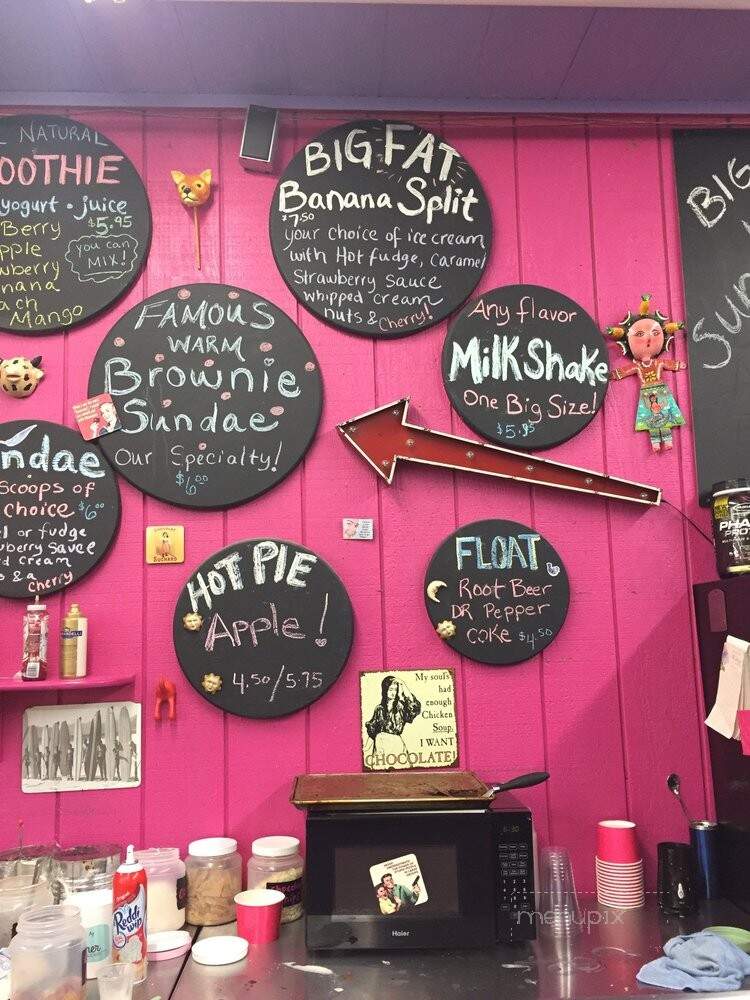 NATURAL
OOTHIE
yogurt • juice
Berry
$5.95
pple
you can
MIX!
wberry
anana
ach
Mango
BIG FAT
Banana Split
$7.50
your choice of ice cream
with Hot fudge, caramel
Strawberry sauce
whipped cream
nuts & Cherry!
BIG
Su
FAMOUS
WARM
Brownie
Sundae
Our Specialty!
$6.00
Any flavor
Milk Shake
One Big Size!
$5.95
ndae
scoops of
choice $6.00
l or fudge
wberry sauce
d cream
s & a cherry
HOT PIE
Apple!
4.50/5.75
FLOAT
Root Beer
DR Pepper
COKE $4.50
My soul's
had
enough
Chicken
Soup,
I WANT
CHOCOLATE!
PHA
PRO
Reddi
wip
Haier
menupix